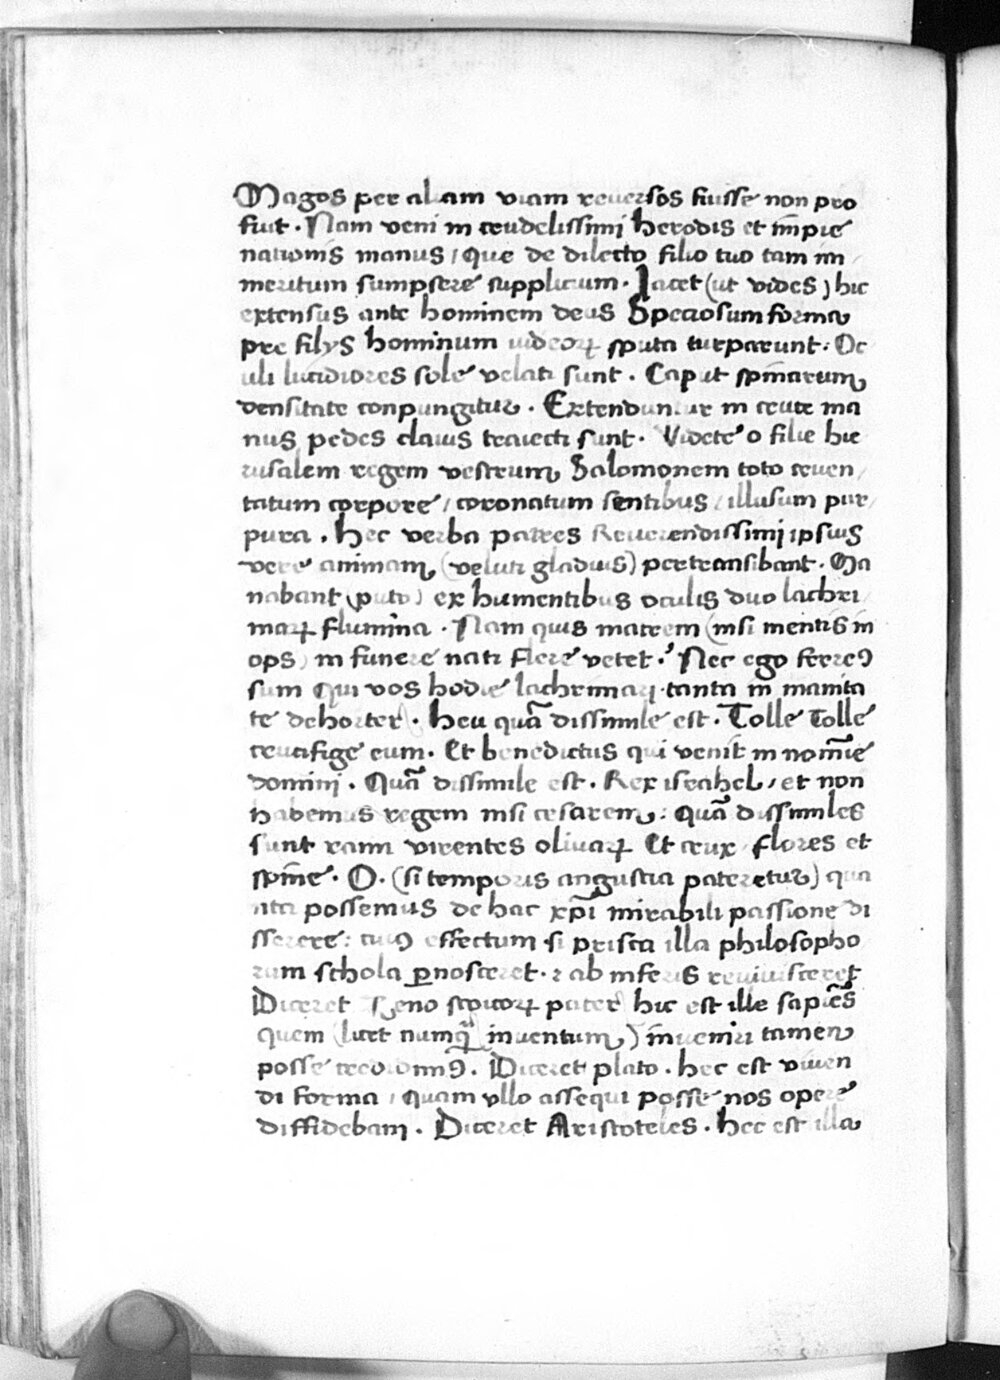 Magos per aliam viam reuersos fuisse non pro
fuit · Nam veni in crudelissimi herodis et īmpie
nationis manus / que de dilecto filio tuo tam im
meritum sumpsere supplicium · Iacet (ut vides) hic
extensus ante hominem deus Speciosum forma
pre filys hominum iudeoꝝ sputa turparunt : Oc
uli lucidiores sole velati sunt · Caput spinarum
densitate conpungitur · Extenduntur in cruce ma
nus pedes clauis traiecti sunt · Videte o filie hie
rusalem regem vestrum Salomonem toto cruen
tatum corpore / coronatum sentibus / illusum pur
pura . hec verba patres Reuerendissimi ipsius
vere animam (veluti gladius) pertransibant · Ma
nabant (puto) ex humentibus oculis duo lachri
maꝝ flumina · Nam quis matrem (nisi mentis in
ops) in funere nati flere vetet · Nec ego ferreꝰ
sum Qui vos hodie lachrimari tanta in manita
te dehorter · heu quā dissimile est · Tolle Tolle
crucifige eum · Et benedictus qui venit in nomīe
domini · Quā dissimile est · Rex israhel / et non
habemus regem nisi cesarem : Quā dissimiles
sunt rami virentes oliuaꝝ Et crux flores et
spīne · O · (si temporis angustia pateretur) qua
nta possemus de hac xp̄i mirabili passione di
sserere : cuiꝰ effectum si prisca illa philosopho
rum schola ꝑnosceret · ⁊ ab inferis reuiuisceret
Diceret Zeno stoicoꝝ pater hic est ille sapiēs
quem (licet numq̄ȝ inuentum) īnueniri tamen
posse credidimꝰ . Diceret plato . hec est viuen
di forma / quam vllo assequi posse nos opere
diffidebam . Diceret Aristoteles . hec est illa